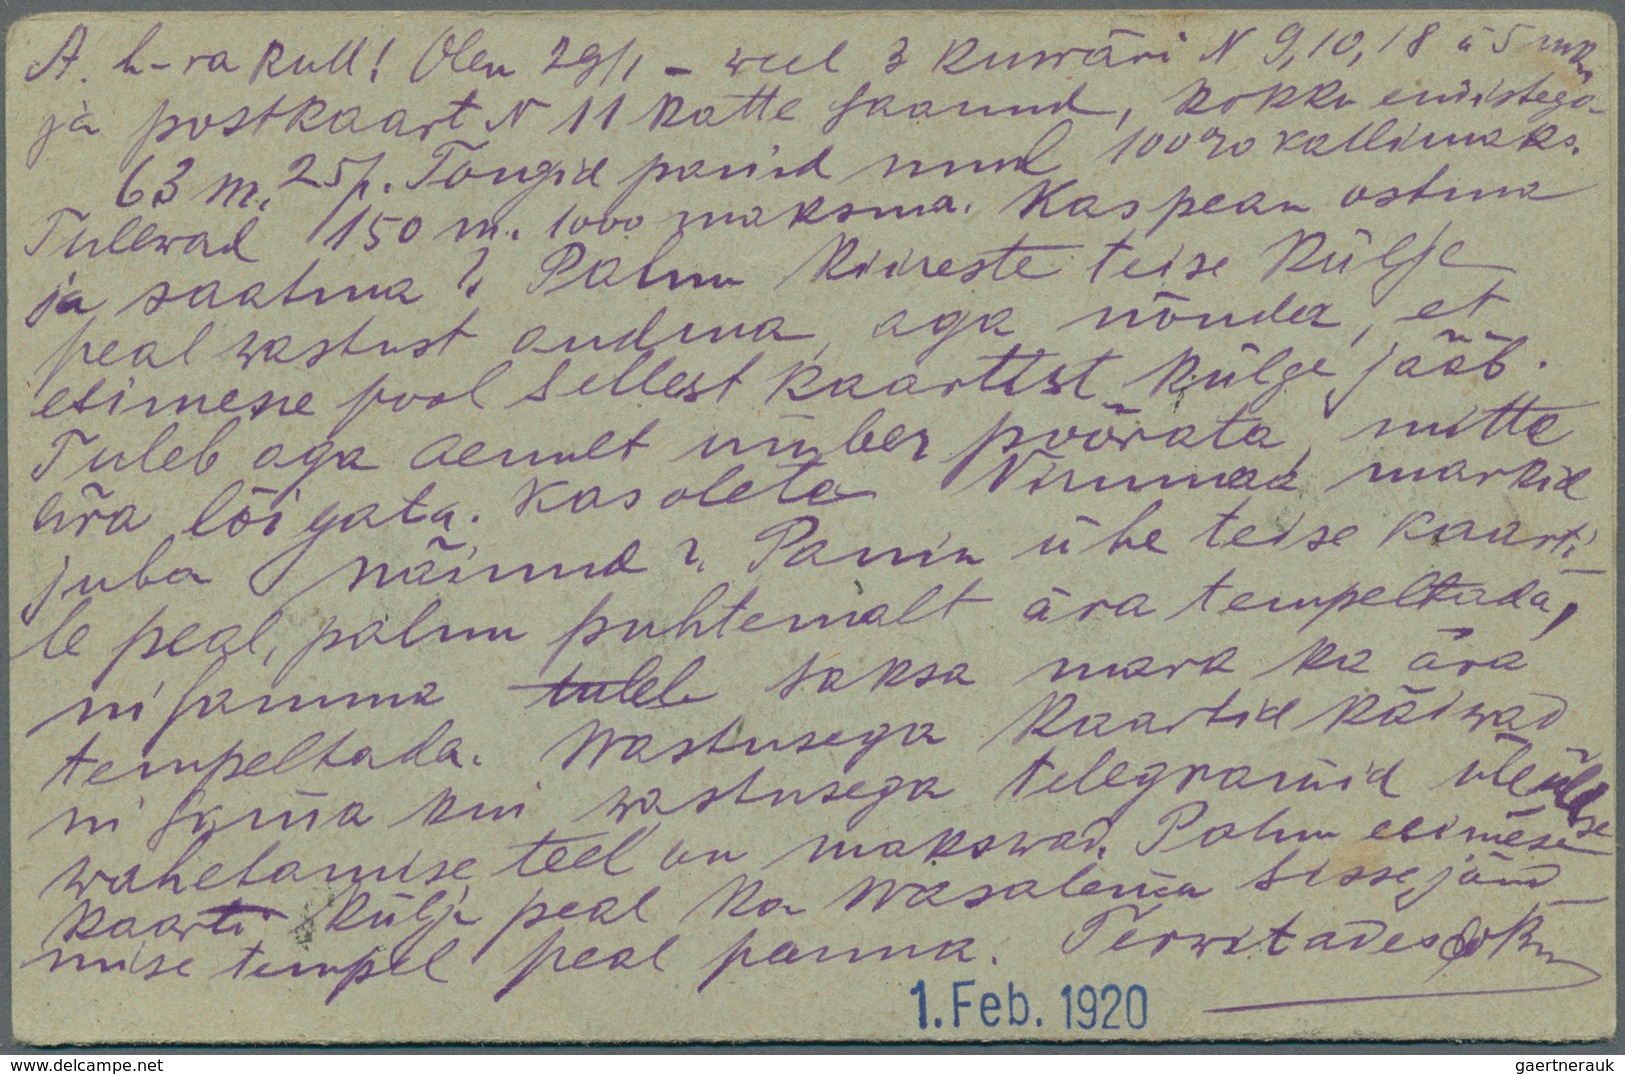 A. h-ra Kull! Olen 29/1 - weel 3 kuwäri N 9, 10, 18 à 5 mk
ja postkaart N 11 Katte saanud, kokku endistega
63 m. 25 p. Tongid panid nuud 100% kallimaks.
Tullwad 150 m. 1000 maksma. Kas pean ostma
ja saatma? Palun kiireste teise külje
peal wastust andma, aga nõnda, et
esimene pool sellest kaartist külge jääb.
Tuleb aga aenult ümber pöörata, mitte
ära lõigata. Kas olete Narwad markid
juba näinud? Panin ühe teise kaarti-
le peal, palun puhtemalt ära tempeltada,
nisamma saksa mark ka ära
tempeltada. Wastusega kaartid käiwad
nisama kui wastusega telegramid üleüldse
wahetamise teel on makswad. Palun esimese
kaarti külje peal ka Wasalema sissejänd
mise tempel peal panna. Terwitades
1. Feb. 1920
www.delcampe.net
gaertnerauk